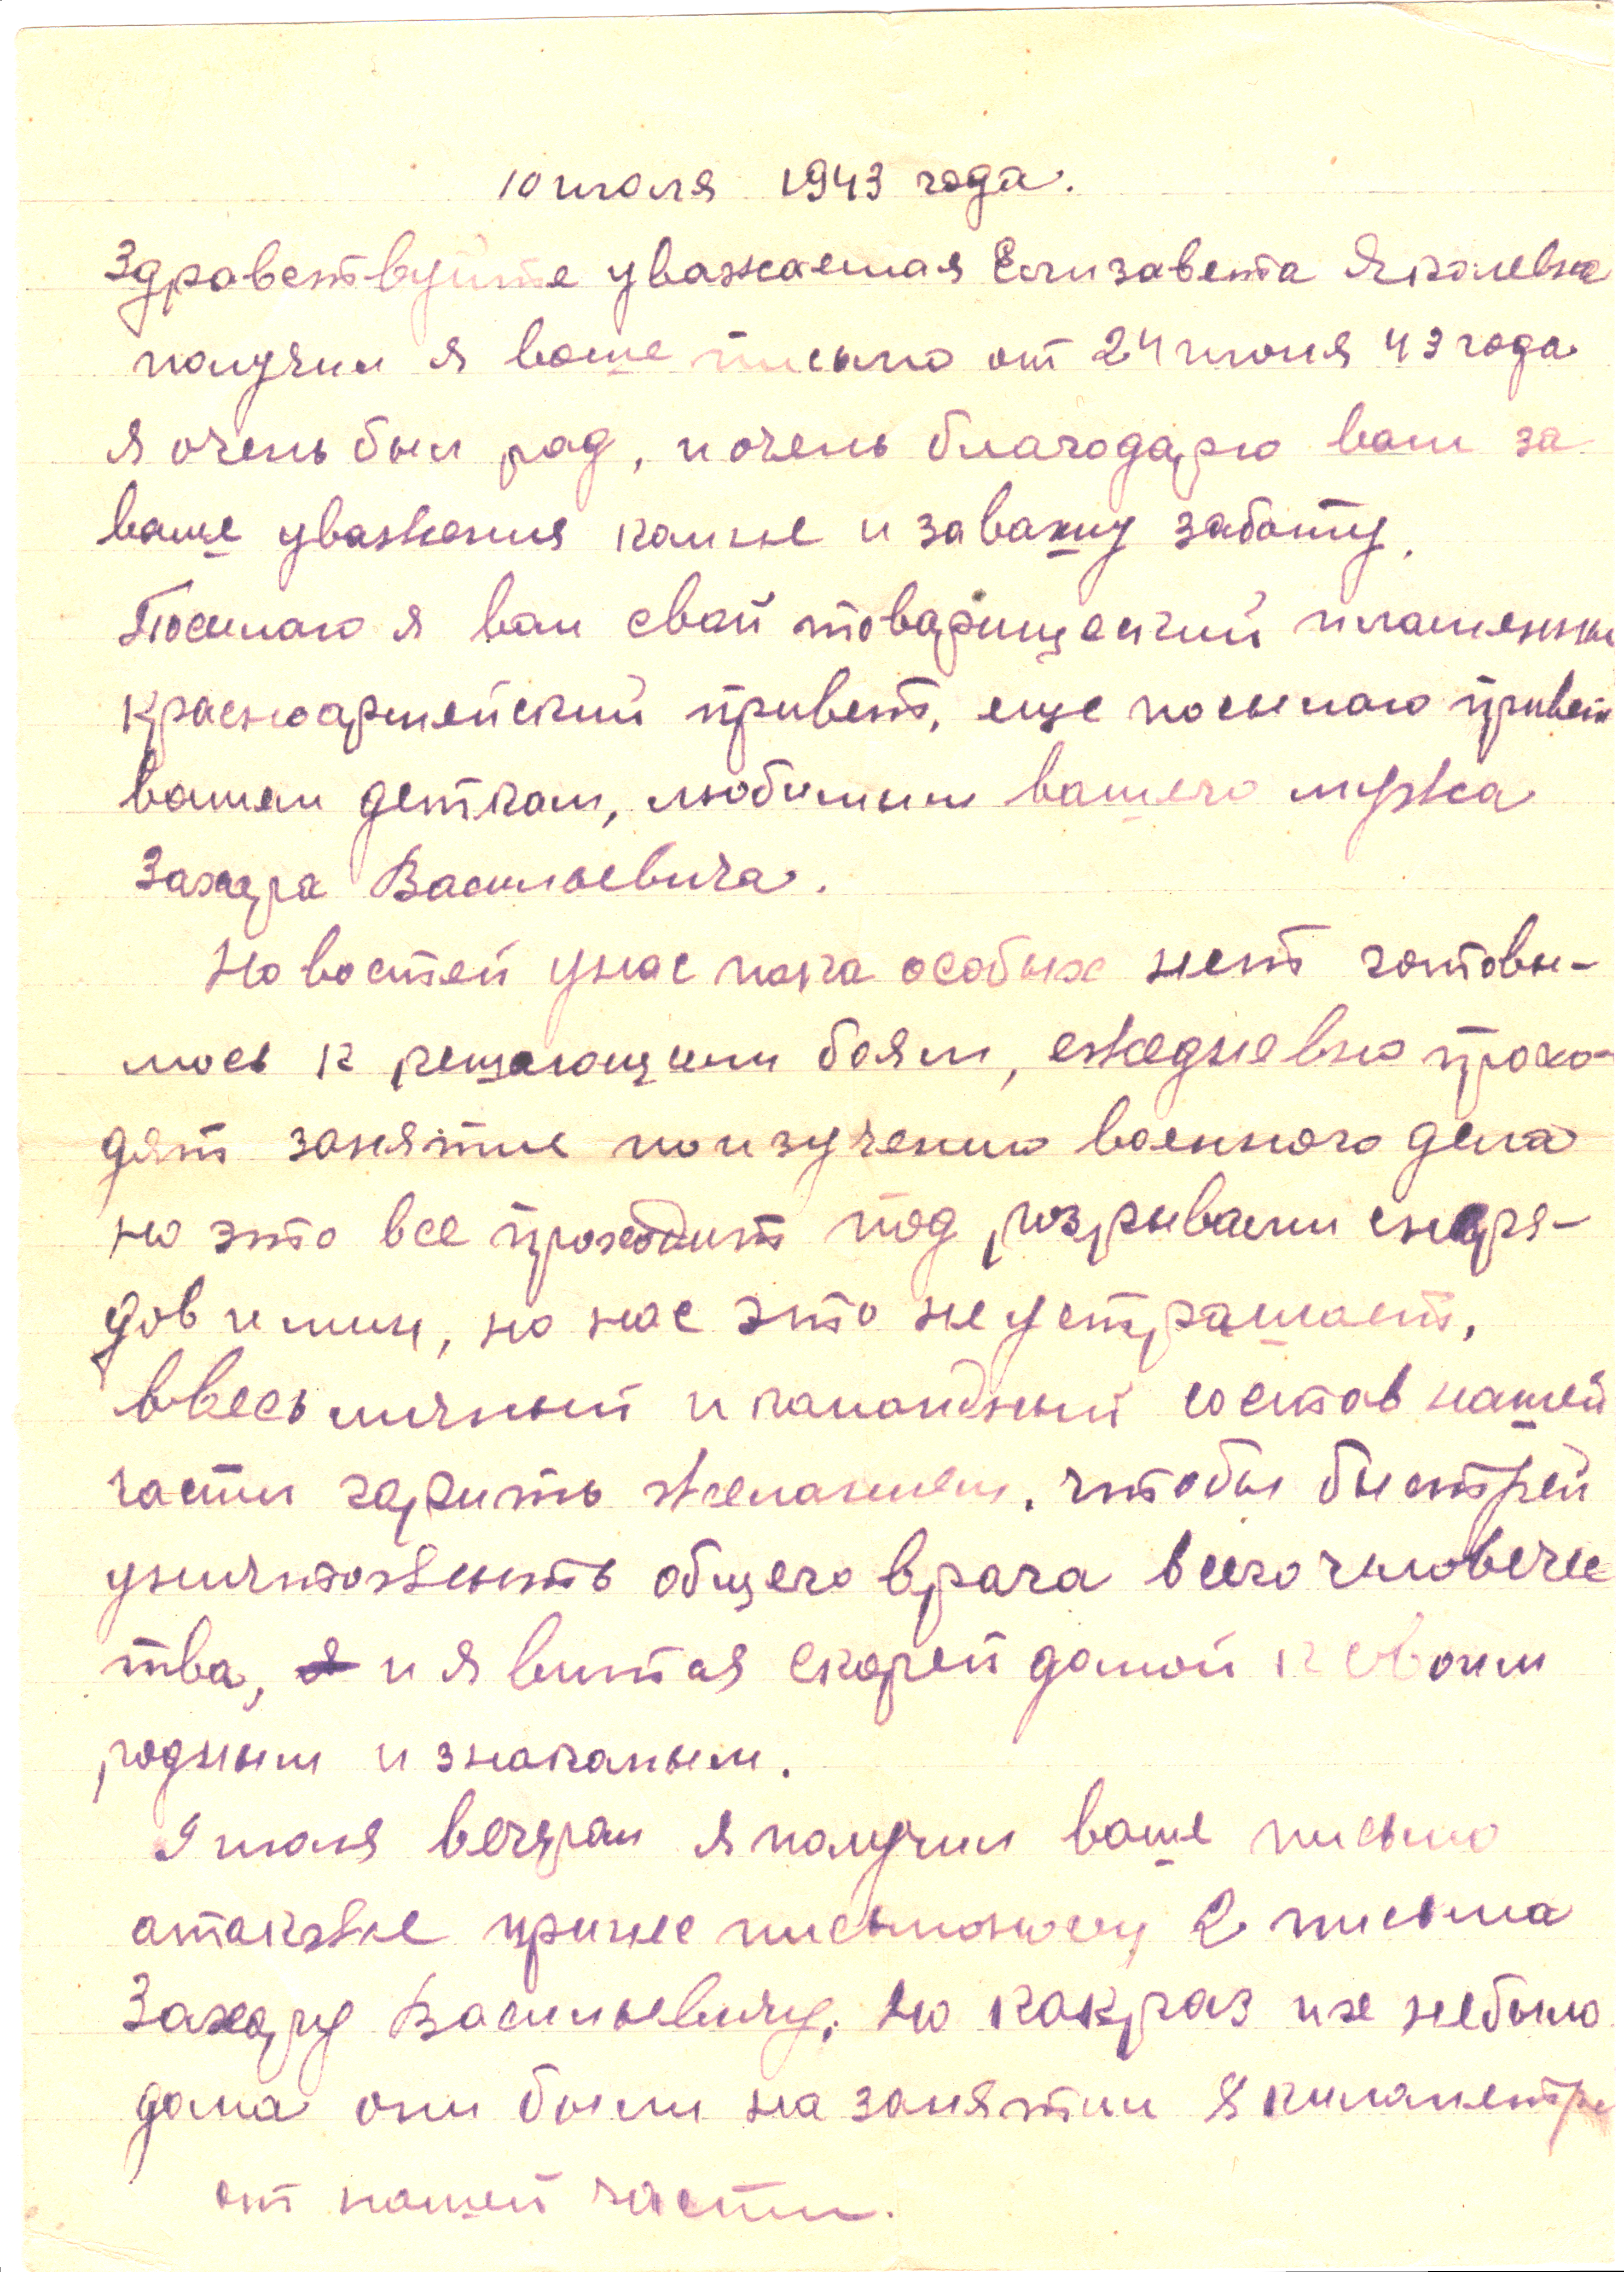 10 июля 1943 года.
Здравствуйте уважаемая Елизавета Яковлевна
получил я ваше письмо от 24 июня 43 года
я очень был рад, и очень благодарю вам за
ваше уважения комне и завашу заботу.
Посылаю я вам свой товарищеский пламенны
красноармейский привет, еще посылаю привет
вашем деткам, любимым вашего мужа
Захара Васильевича.
Новостей унас пока особых нет готовы-
мось к решающим боям, ежедневно прохо-
дят занятие по изучению военного дела
но это все проходит под розрывами снаря-
дов и мин, но нас это не устрашает,
ввесь личный и командный состав нашей
части гарить желанием, чтобы быстрей
уничтожить общего врага всего человечес
тва, и явится скорей домой к своим
родным и знакомым.
9 июля вечером я получил ваше письмо
атакже принес письмоносец 2 письма
Захару Васильевичу, но какраз их небыло
дома они были на занятии 8 километре
от нашей части.